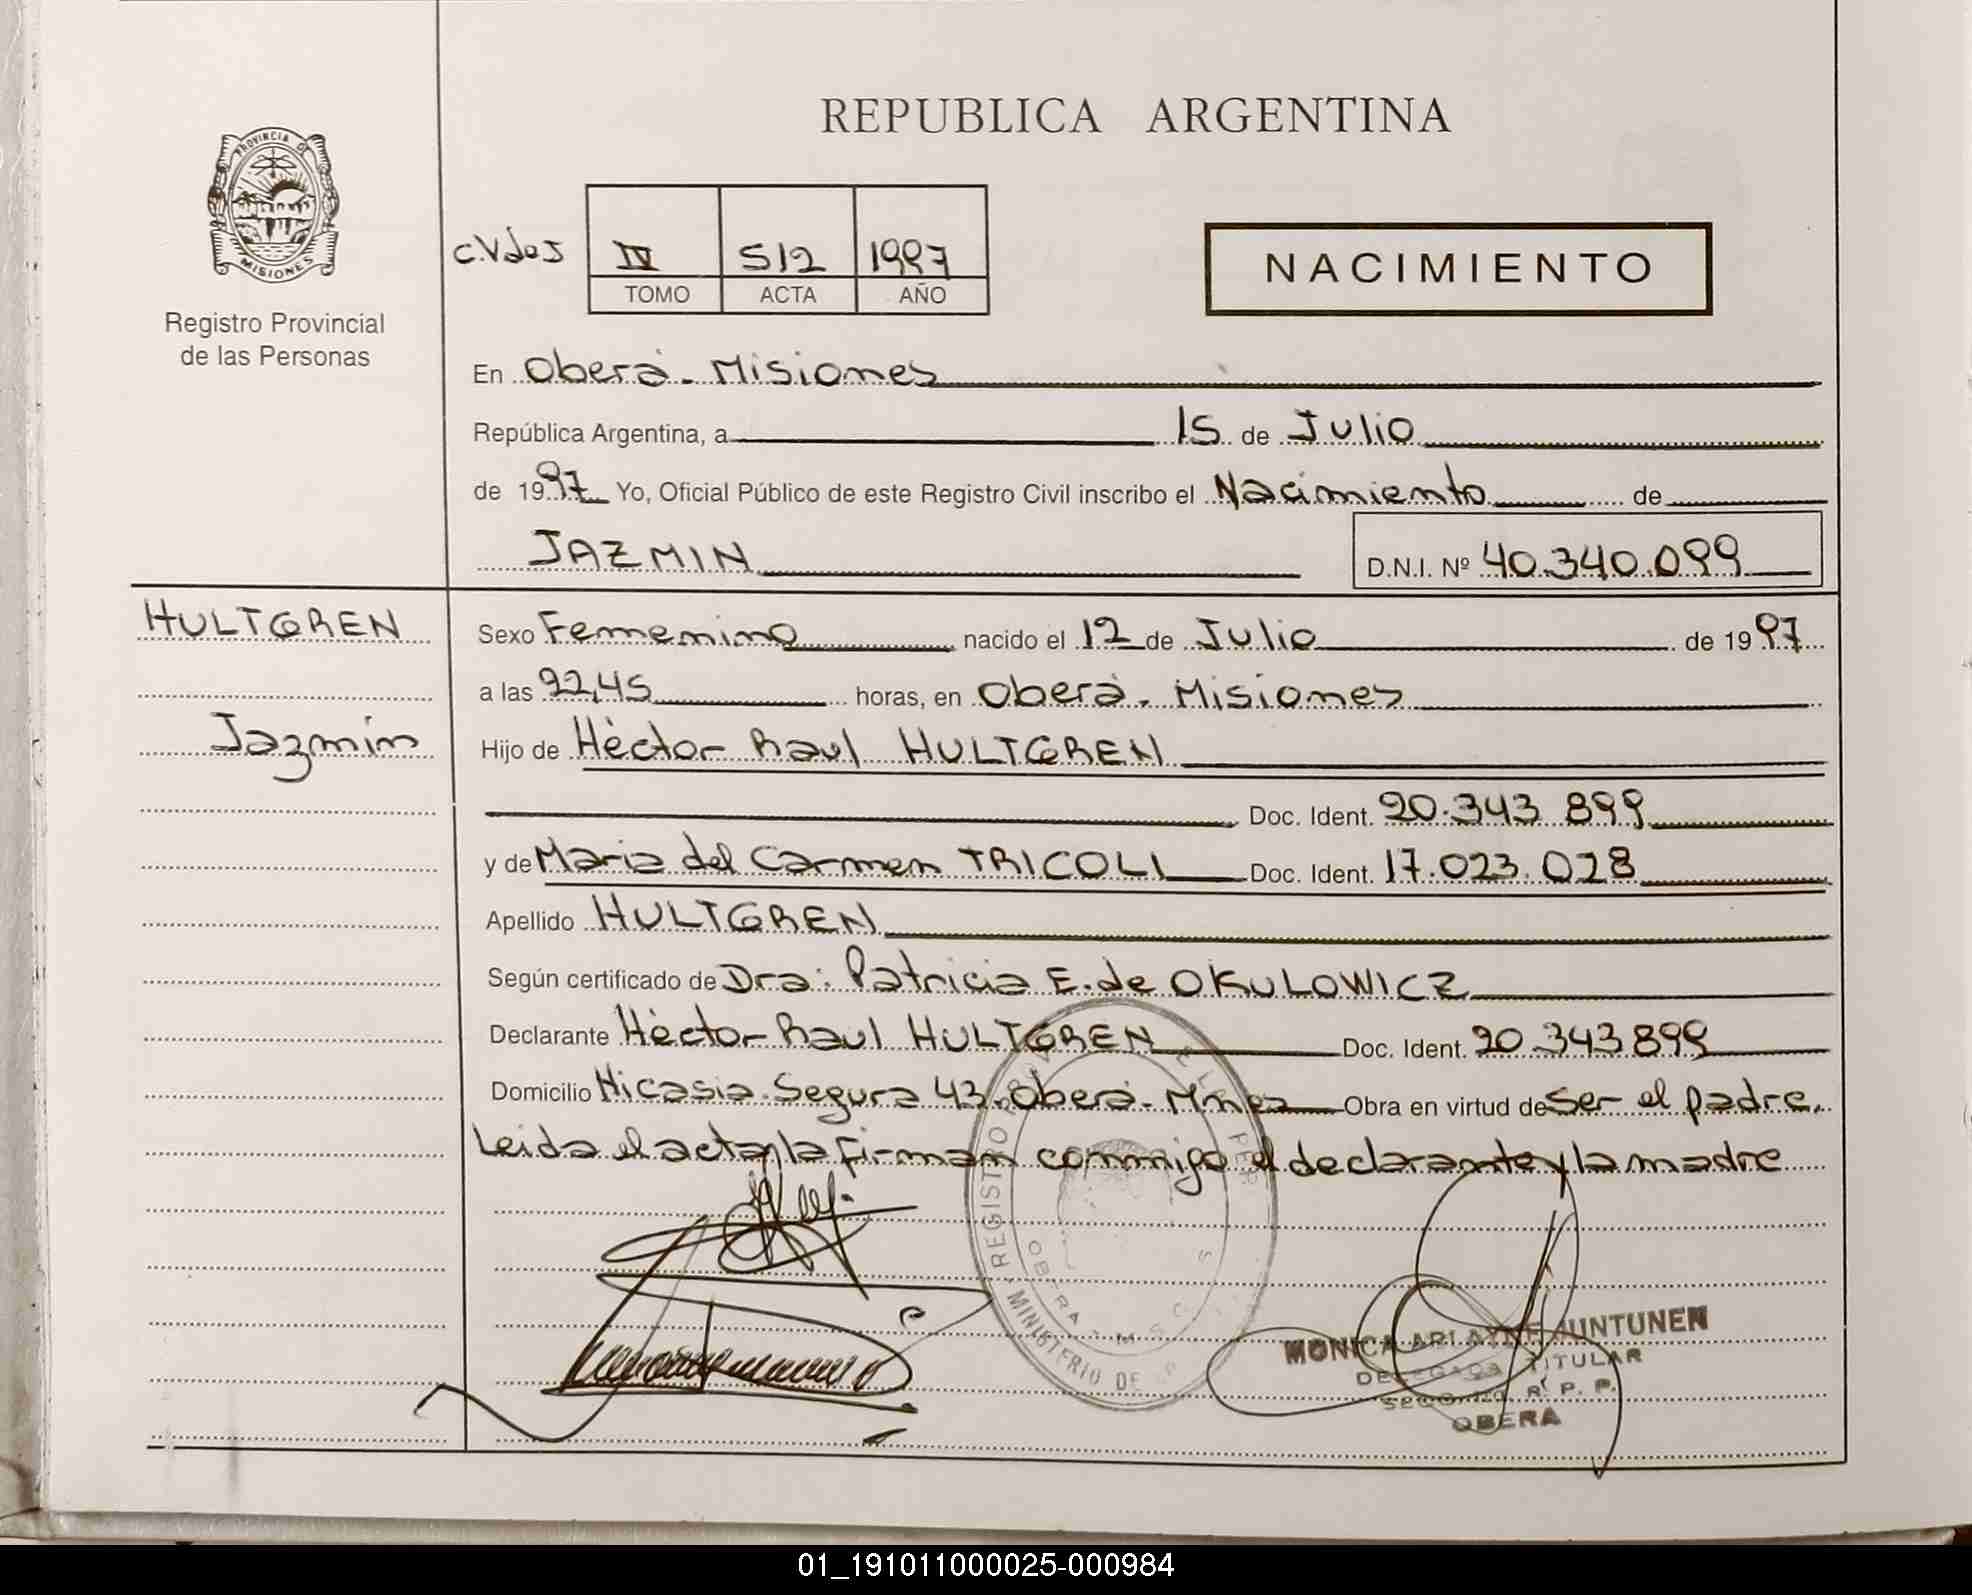 REPUBLICA ARGENTINA
PROVINCIA DE
MISIONES
Registro Provincial
de las Personas
C.V de S
IV 512 1997
TOMO ACTA AÑO
NACIMIENTO
En Oberá - Misiones
República Argentina, a 15 de Julio
de 1997 Yo, Oficial Público de este Registro Civil inscribo el Nacimiento de
JAZMIN D.N.I. Nº 40.340.099
HULTGREN
Jazmín
Sexo Femenino nacido el 12 de Julio de 1997
a las 22,45 horas, en Oberá - Misiones
Hijo de Héctor Raul HULTGREN
Doc. Ident. 20.343 899
y de Maria del Carmen TRICOLI Doc. Ident. 17.023.028
Apellido HULTGREN
Según certificado de Dra: Patricia E. de OKULOWICZ
Declarante Héctor Raul HULTGREN Doc. Ident. 20.343.899
Domicilio Nicasia Segura 43. Oberá - Mnes Obra en virtud de Ser el padre.
Leida el acta, la firman conmigo el declarante y la madre
REGISTRO
MINISTERIO DE
OBERA - MSES
MONICA ARLAYNE JUNTUNEN
DELEGADA TITULAR
R. P. P.
OBERA
01_191011000025-000984